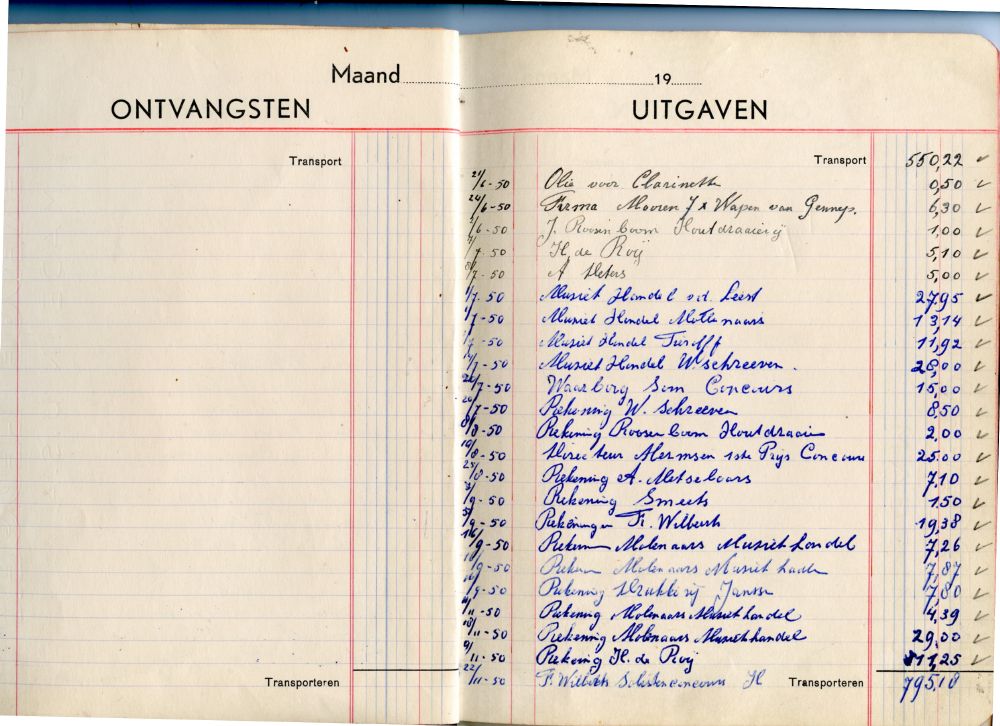 Maand 19
ONTVANGSTEN
Transport
Transporteren
UITGAVEN
Transport 550,22
21/6-50 Olie voor Clarinette 0,50
24/6-50 Firma Mooren J x Wapen van Gennep. 6,30
/6-50 J. Roosenboom Houtdraaierij 1,00
/7-50 H. de Roij 5,10
8/7-50 A 5,00
1/7-50 Musiek Handel v.d. Leest 27,95
/7-50 Musiek Handel 13,14
/7-50 Musiek Handel 11,92
/7-50 Musiek Handel W. Schreeven. 28,00
20/7-50 Waarborg Som Concours 15,00
20/7-50 Rekening W. Schreeven 8,50
8/8-50 Rekening Roosenboom Houtdraaier 2,00
19/8-50 Directeur Hermsen 1ste Prijs Concours 25,00
25/8-50 Rekening A. Metselaars 7,10
/9-50 Rekening Smeets 1,50
/9-50 Rekeningen F. Wilberts 19,38
16/9-50 Molenaars Musiekhandel 7,26
/9-50 Molenaars Musiek 7,87
/9-50 Rekening Drukkerij Janssen 7,80
/11-50 Rekening Molenaars Musiekhandel 4,39
/11-50 Rekening Molenaars Musiekhandel 29,00
/11-50 Rekening H. de Roij 11,25
22/11-50 F. Wilberts Solistenconcours H
Transporteren 795,18